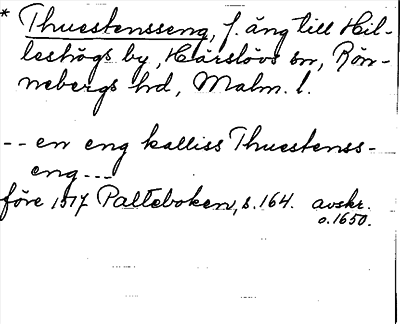 * Thuestensseng, f. äng till Hil-
leshögs by, Härslövs sn, Rön-
nebergs hd, Malm. l.
-- en eng kalliss Thuestenss-
eng ---
före 1517 Palteboken, s. 164. avskr.
o. 1650.